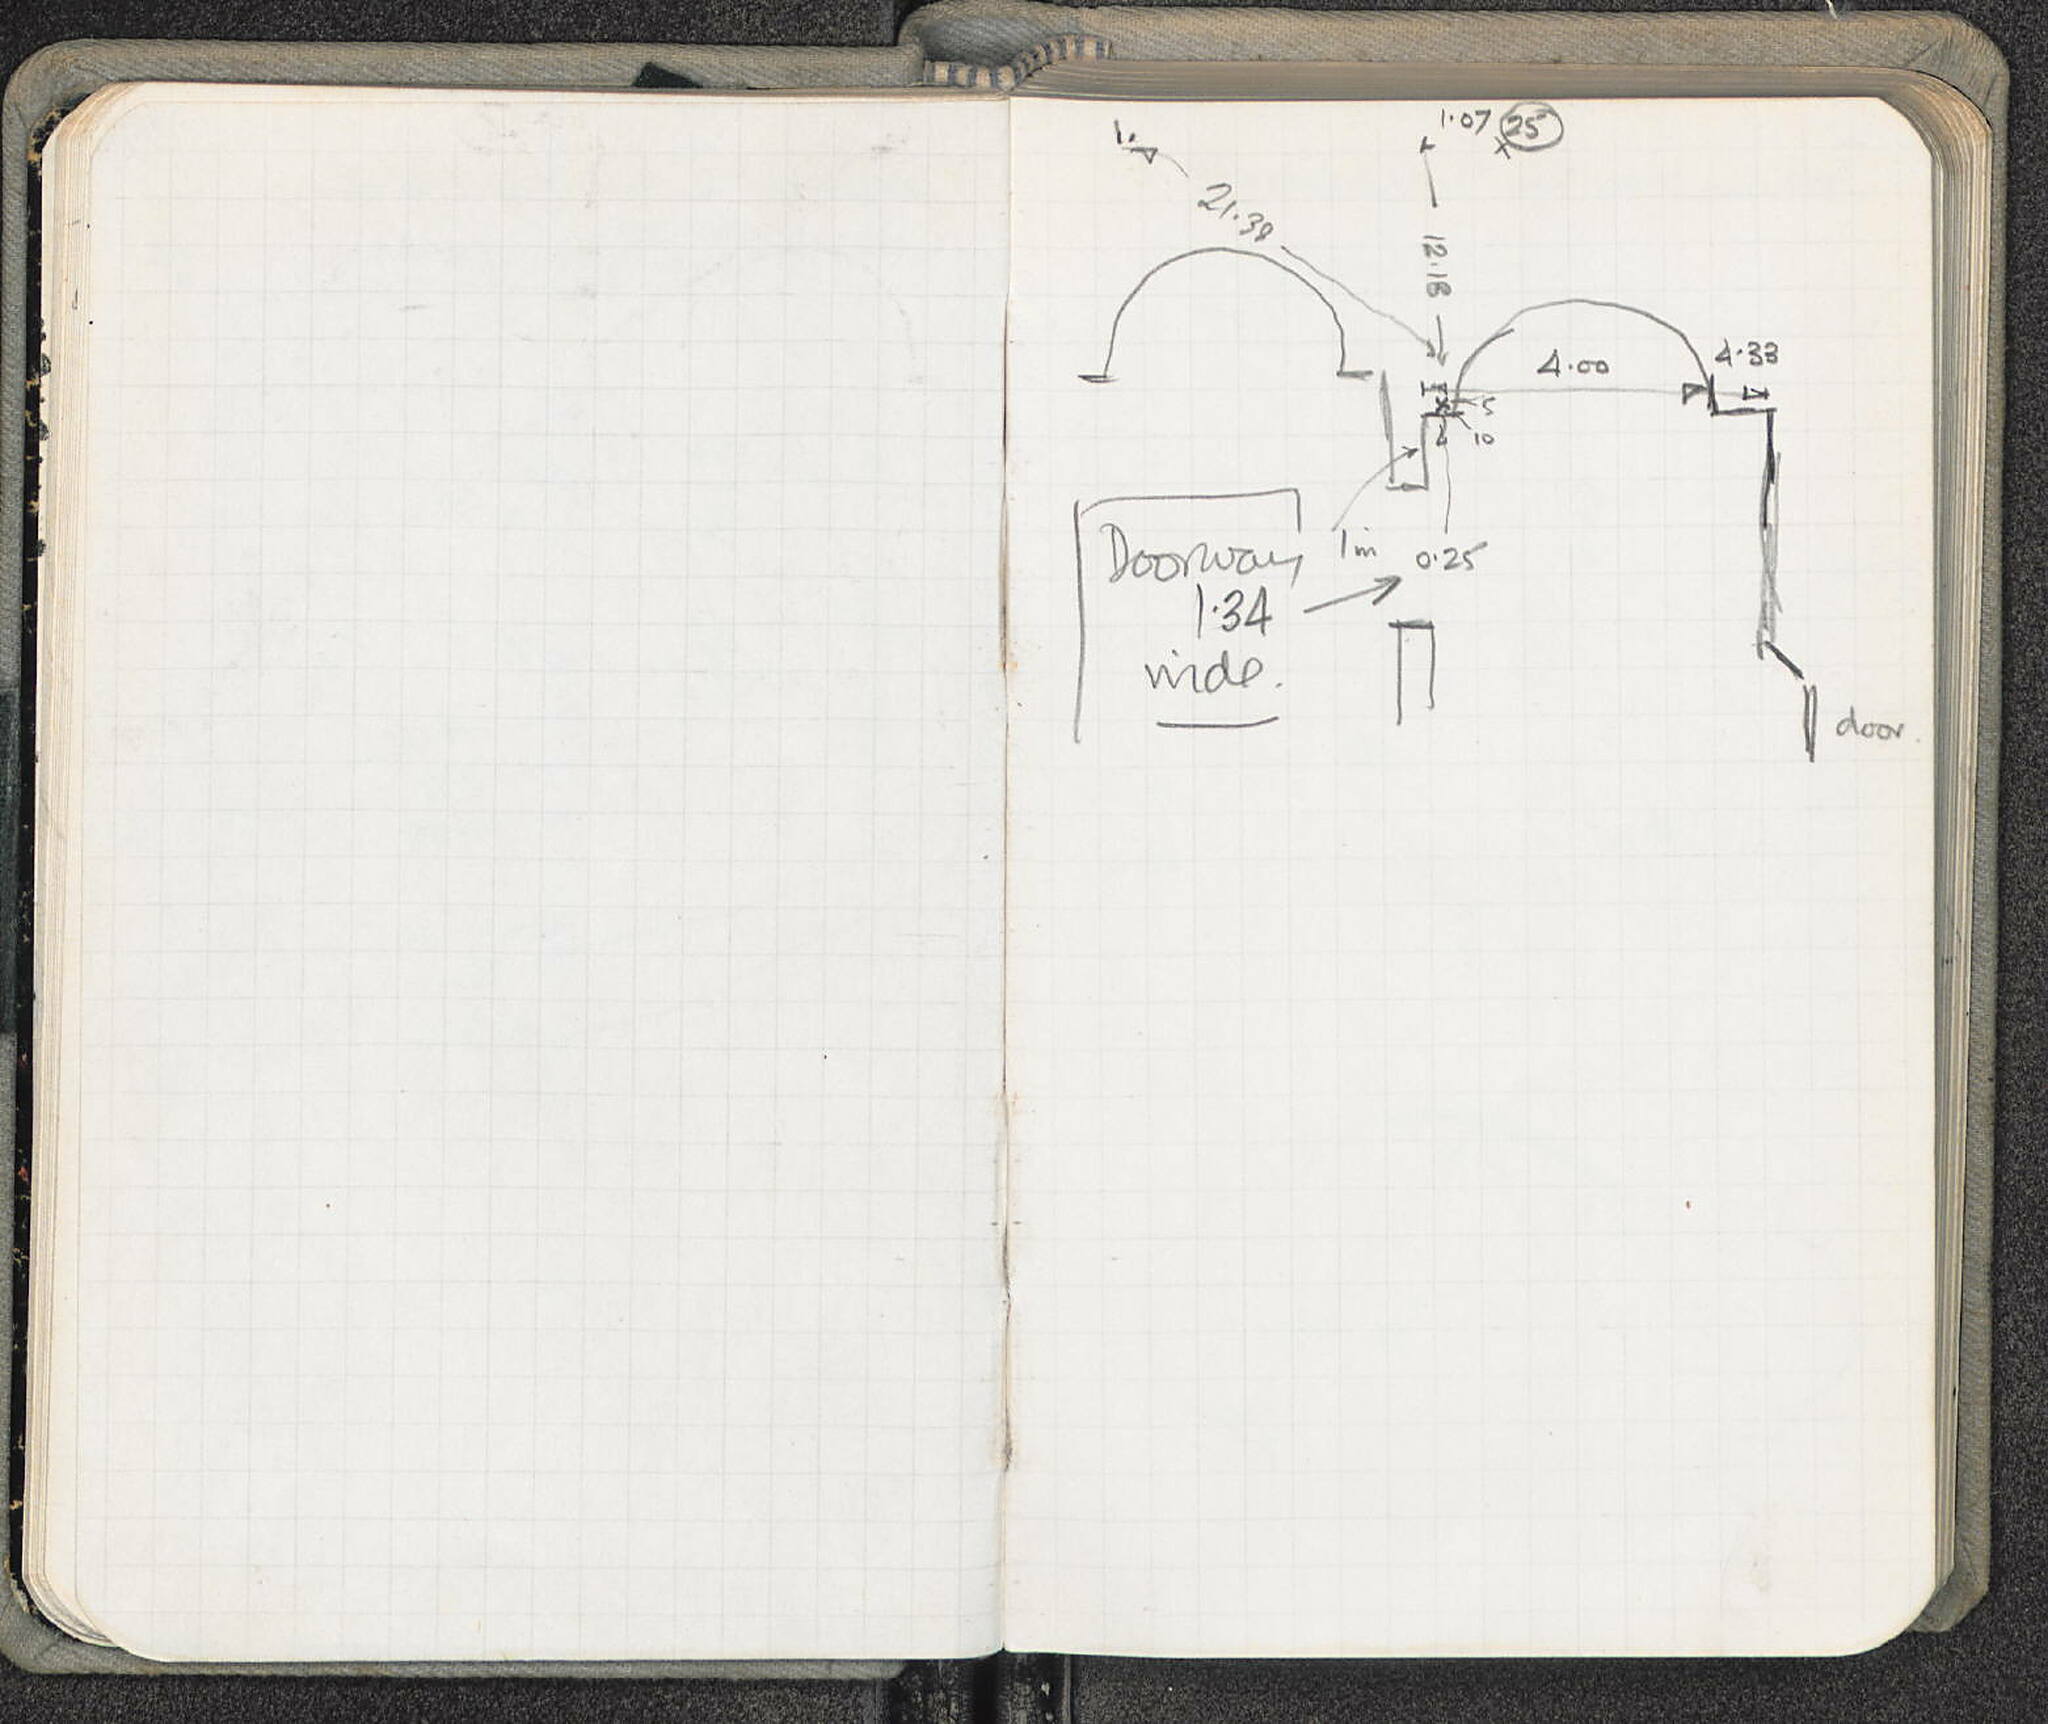 1.
1.07 25
21.38
12.18
4.00
4.33
5
10
Doorway
1.34
wide.
1m
0.25
door.